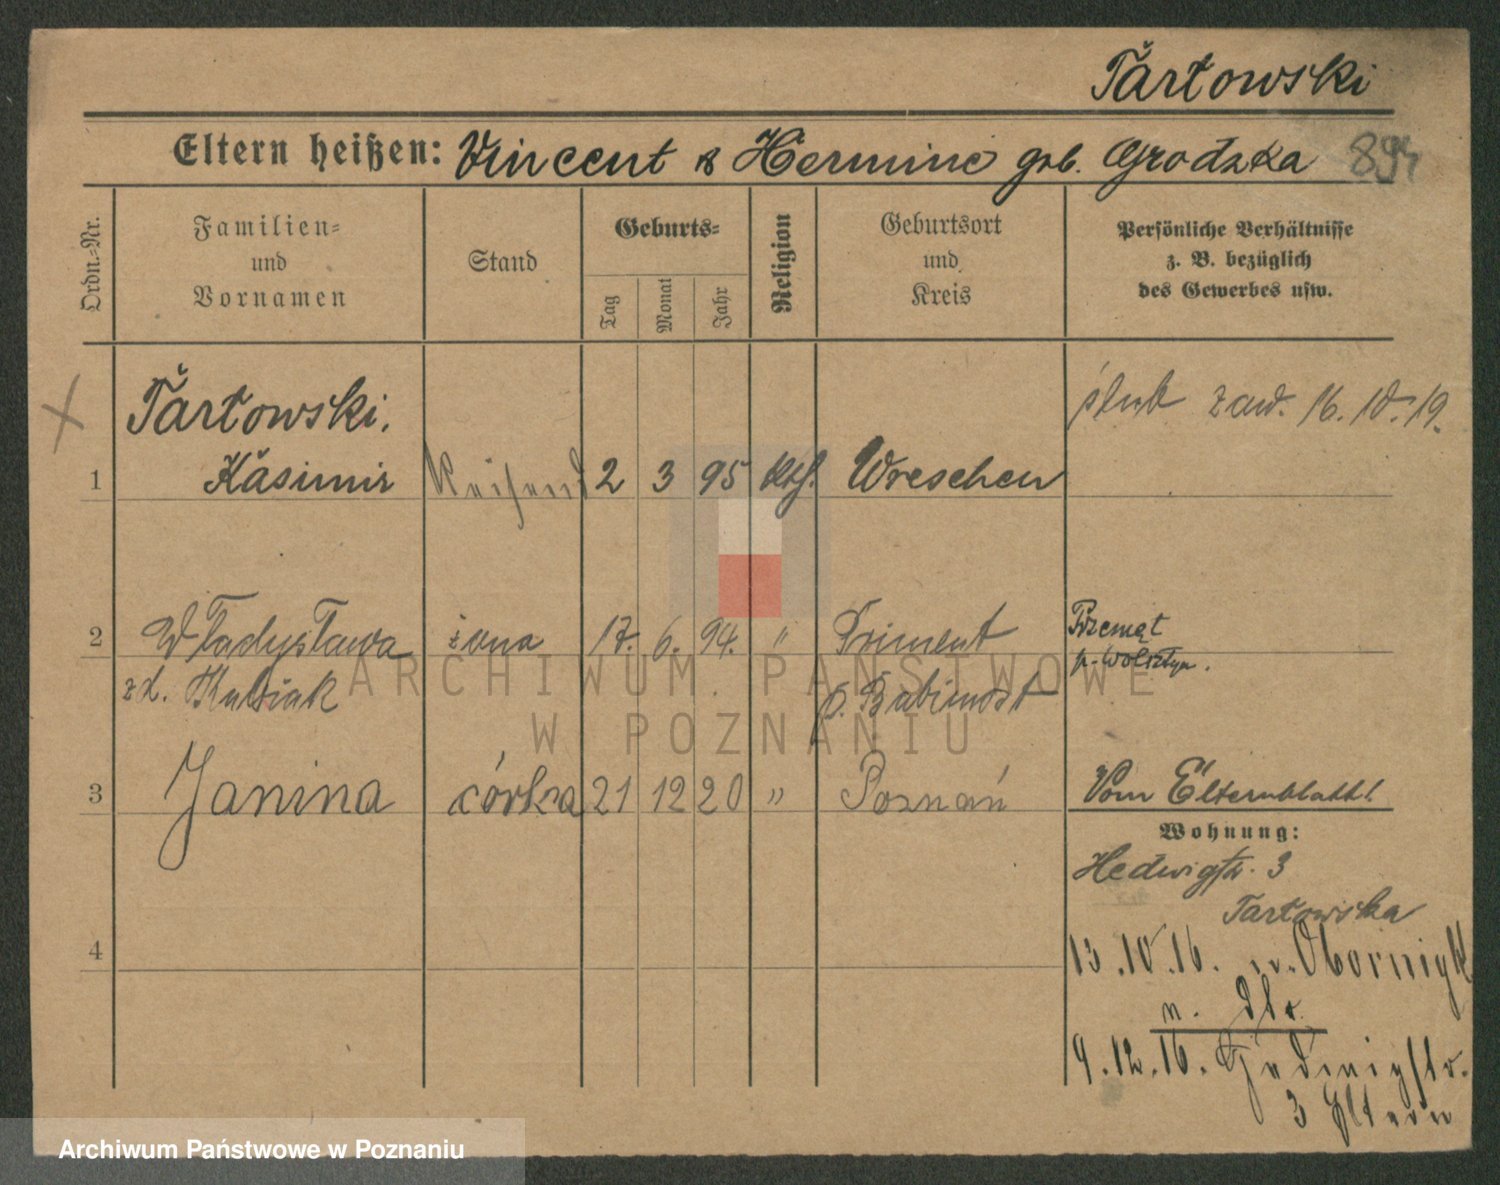 Tartowski
Eltern heißen: Vincent & Hermine geb. Grodzka 894
Ordn.-Nr.
Familien-
und
Vornamen
Stand
Geburts-
Tag
Monat
Jahr
Religion
Geburtsort
und
Kreis
Persönliche Verhältnisse
z. B. bezüglich
des Gewerbes usw.
ślub zaw. 16.10.19.
Tartowski,
1 Kasimir 2 3 95 kth. Wreschen
2 Władysława żona 17. 6. 94. " Priment
zd. Kubiak p. Babimost
Przemęt
p. Wolsztyn.
3 Janina córka 21 12 20 " Poznań
Vom Elternblatt!
Wohnung:
Hedwigstr. 3
Tartowska
4
13.10.16. n. Obornigk
9.12.16. Hedwigstr.
3 Eltern
ARCHIWUM PAŃSTWOWE
W POZNANIU
Archiwum Państwowe w Poznaniu